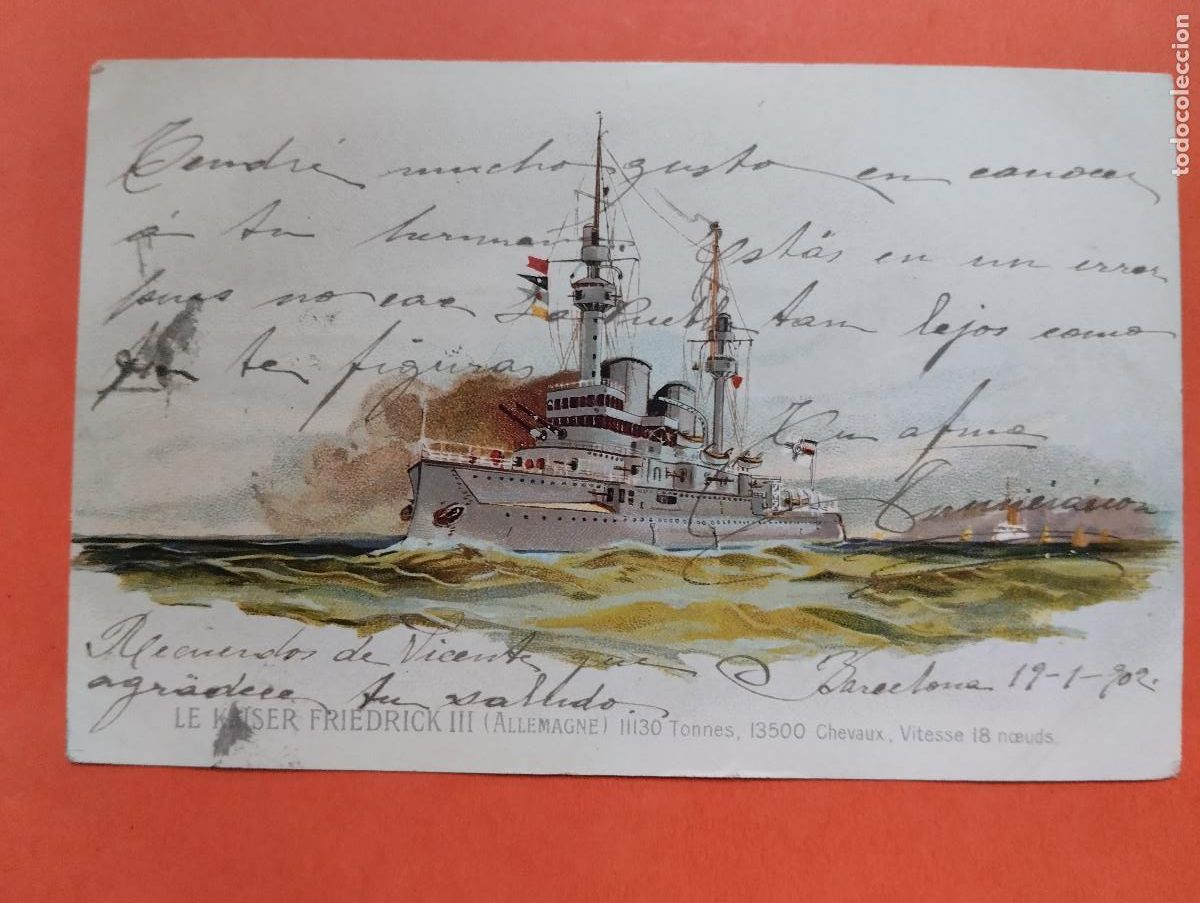 Tendré mucho gusto en conocer
á tu hermano. Estás en un error
pues no cae La Puebla tan lejos como
tu te figuras
Tu afma
Recuerdos de Vicente que
agradece tu saludo.
Barcelona 19-1-902.
LE KAISER FRIEDRICK III (ALLEMAGNE) 11130 Tonnes, 13500 Chevaux, Vitesse 18 nœuds.
todocoleccion